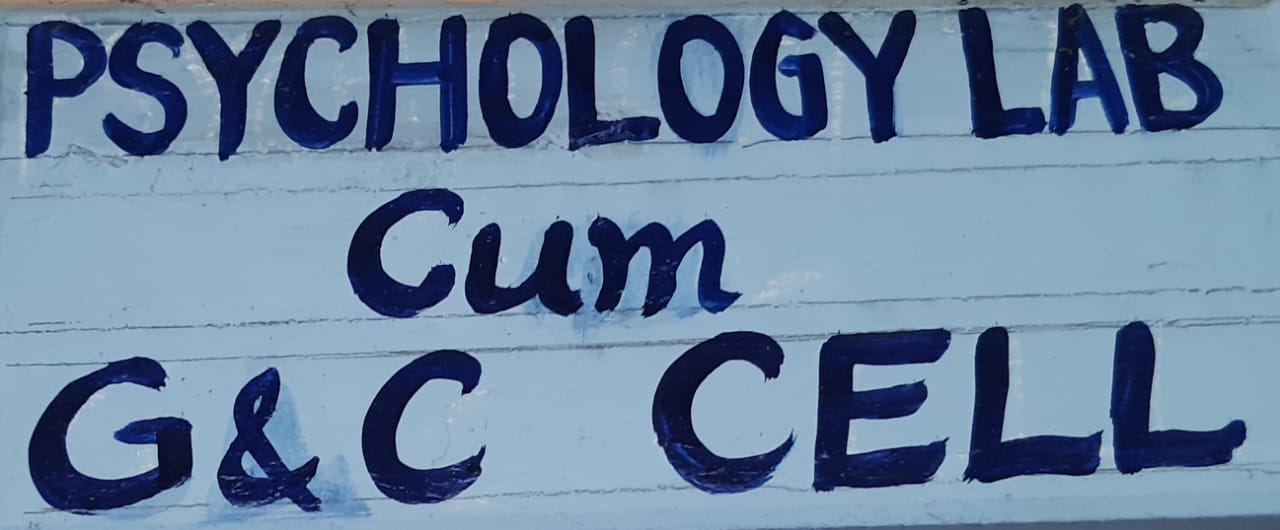 PSYCHOLOGY LAB
Cum
G & C CELL